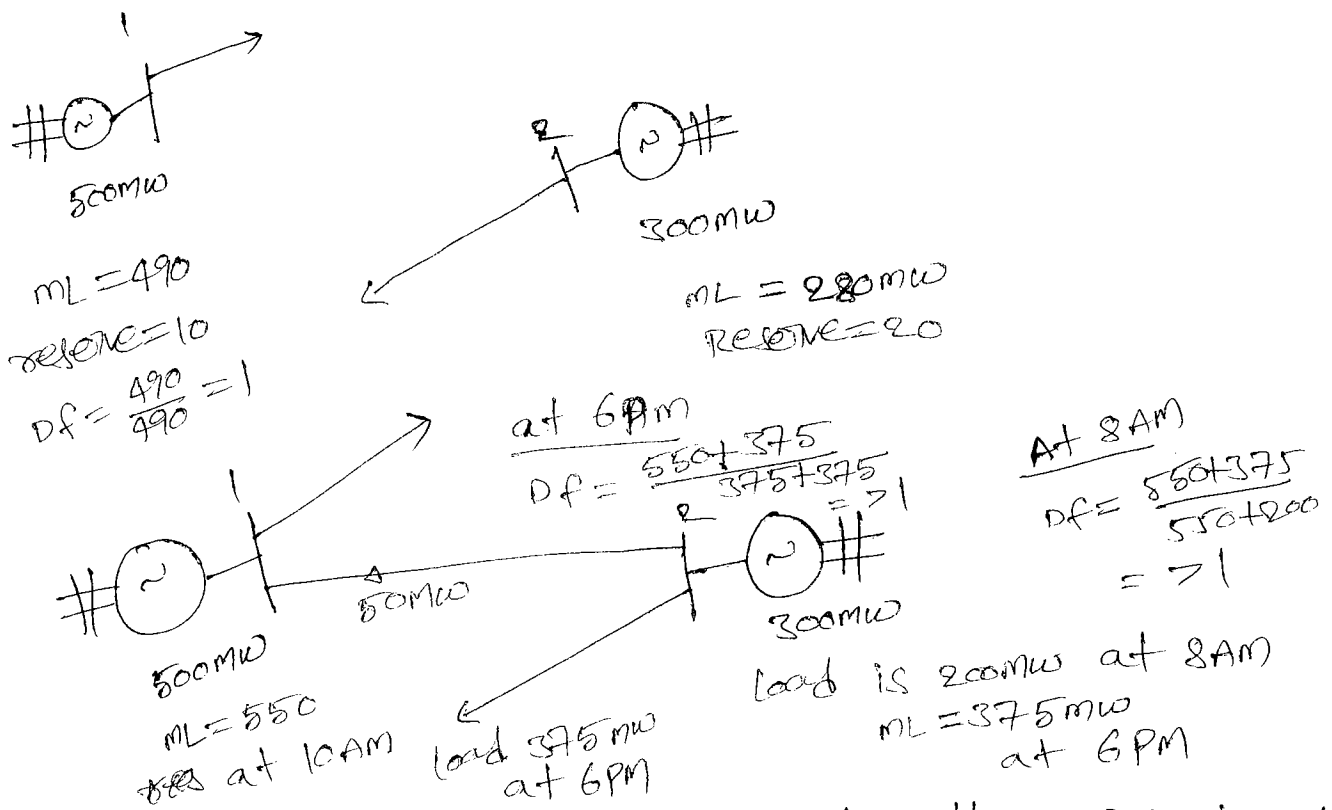 1
500MW
ML = 490
reserve = 10
Df = 490/490 = 1
2
300MW
ML = 280MW
Reserve = 20
at 6PM
Df = 550+375/375+375
= >1
At 8AM
Df = 550+375/550+200
= >1
1
500MW
ML = 550
at 10AM
50MW
2
300MW
load 375MW
at 6PM
load is 200MW at 8AM
ML = 375MW
at 6PM